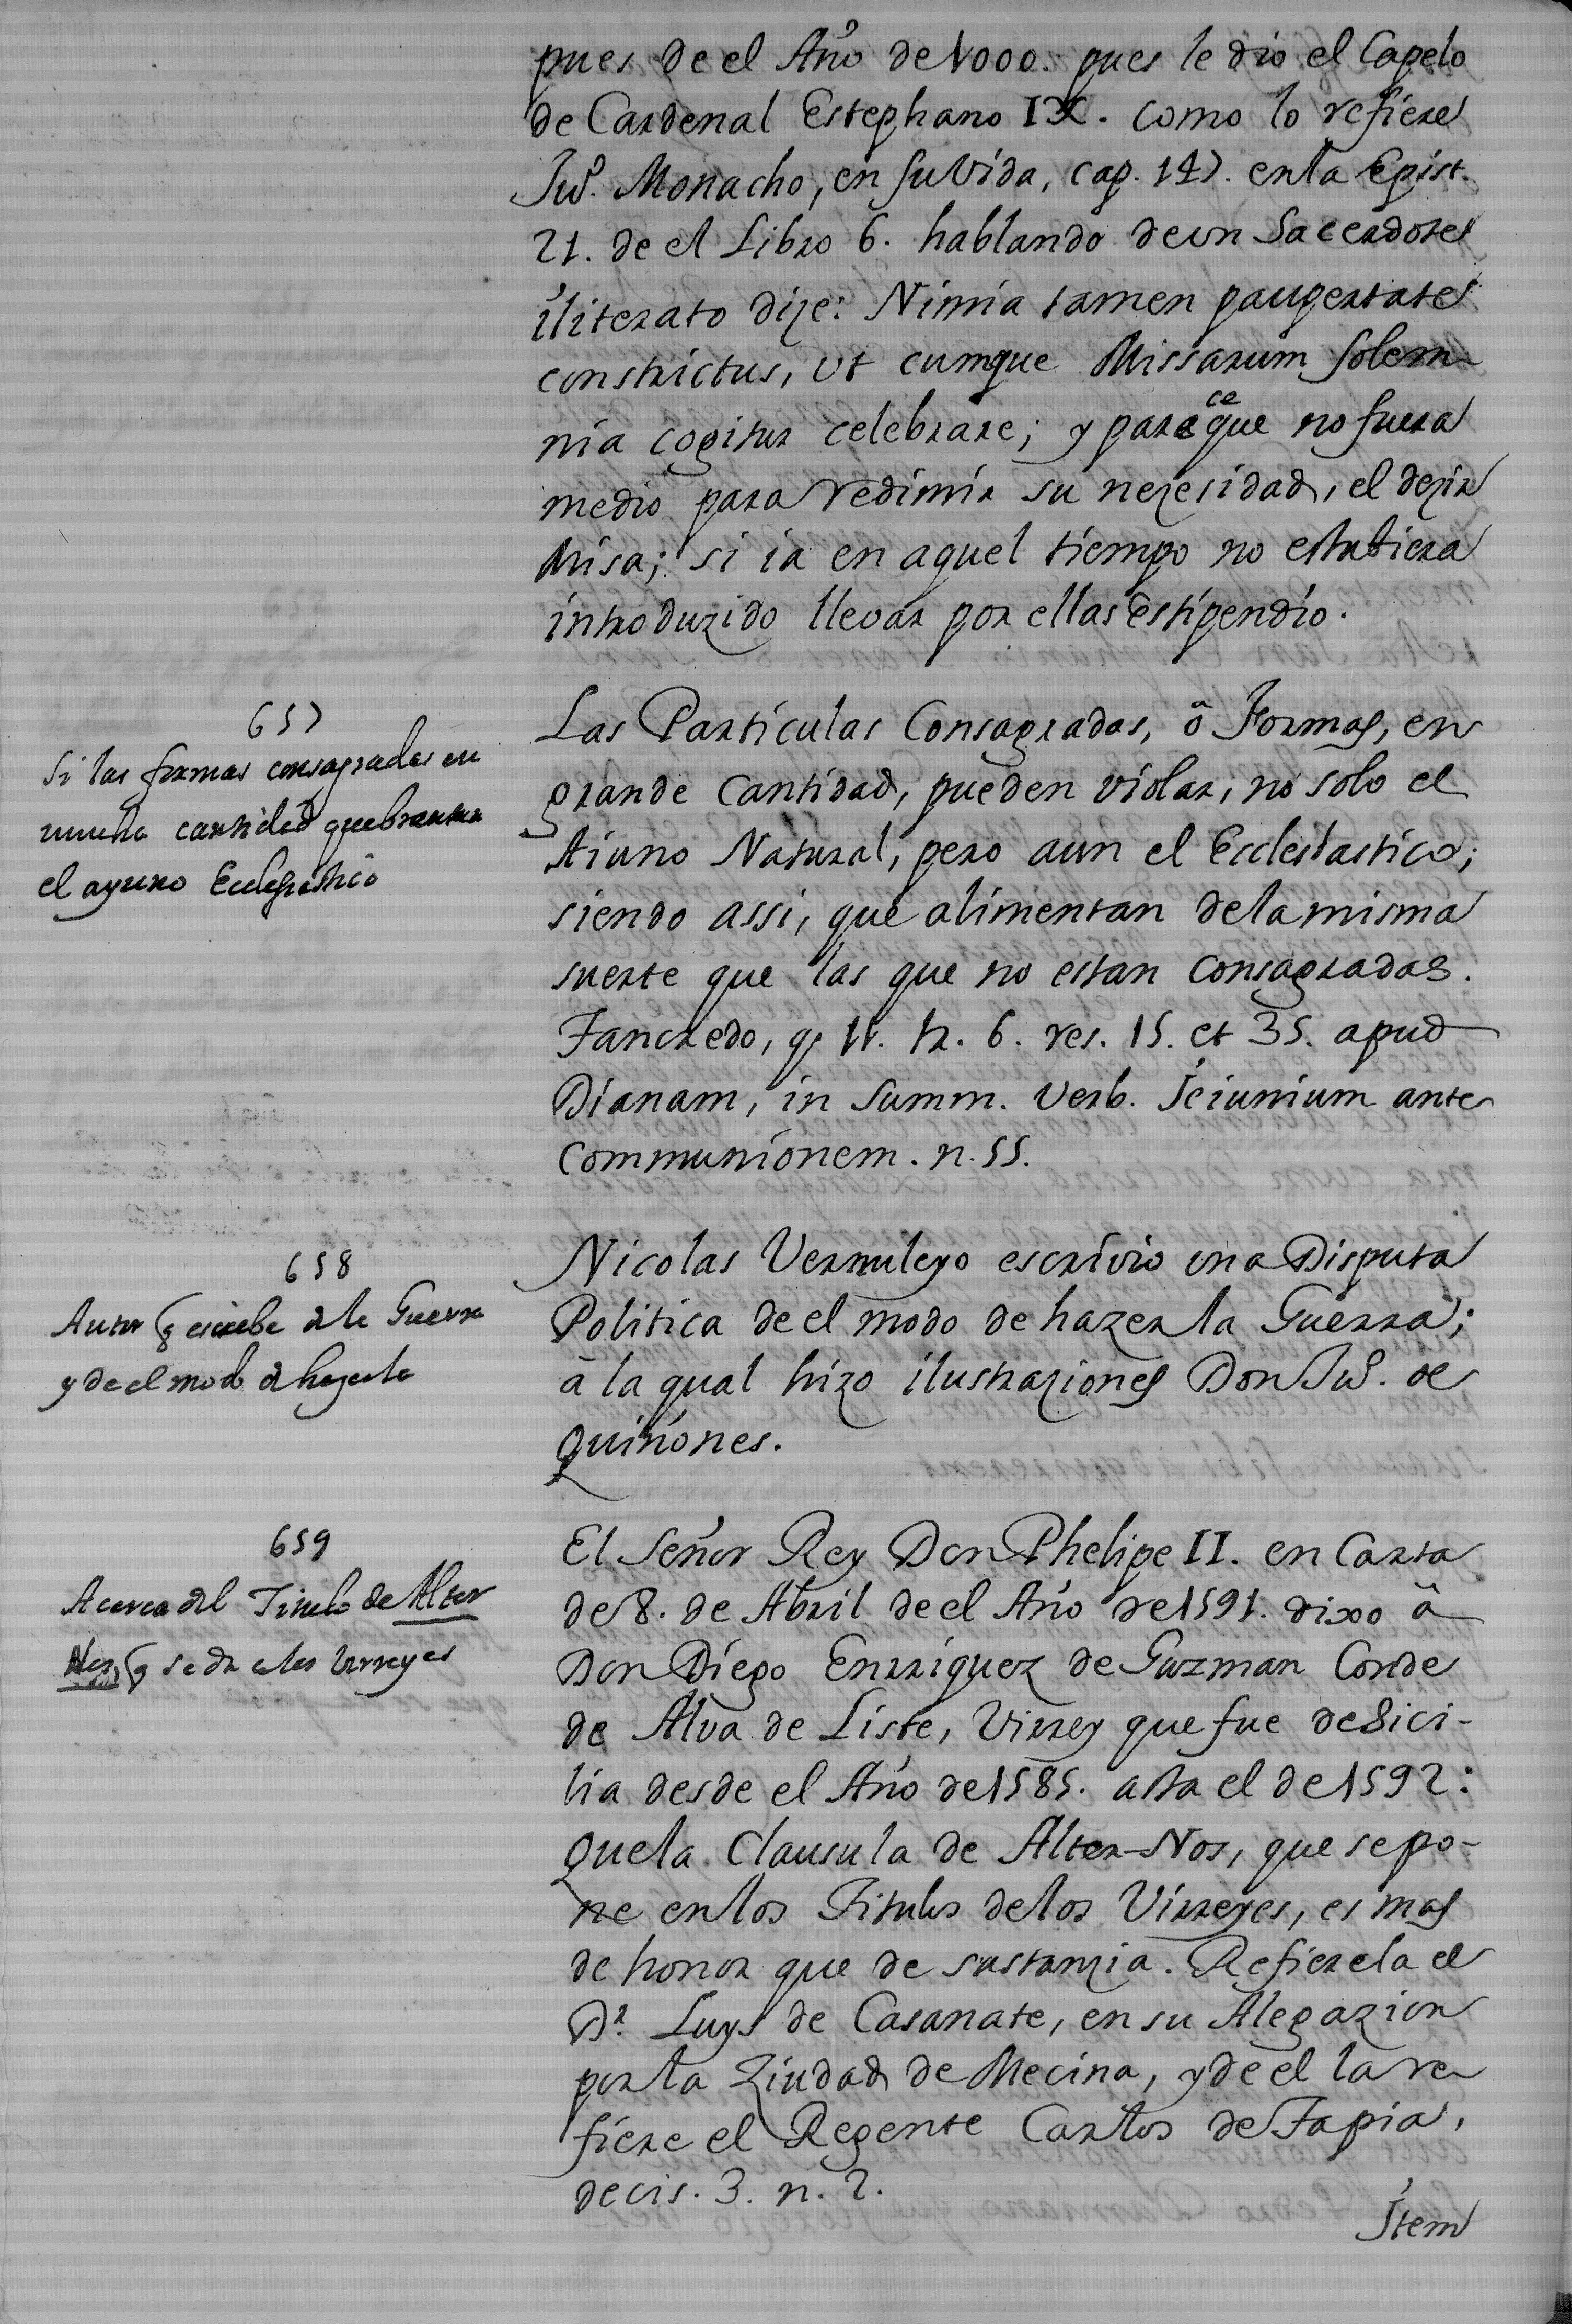 pues de el Año de 1000. pues le dio el Capelo
de Cardenal Estephano IX. como lo refiere
Juº. Monacho, en su Vida, cap. 14). en la Epist.
21. de el Libro 6. hablando de un Sacerdote
iliterato dize: Nimia tamen paupertate
constrictus, ut cumque Missarum solem-
nia cogitur celebrare; y parece que no fuera
medio para redimir su nezesidad, el dezir
Misa; si ia en aquel tiempo no estubiera
introduzido llevar por ellas Estipendio.
657
Si las formas consagradas en
mucha cantidad quebrantan
el ayuno Ecclesiastico
Las Particulas Consagradas, ô Formas, en
grande Cantidad, pueden violar, no solo el
Aiuno Natural, pero aun el Ecclesiastico;
siendo assi, que alimentan de la misma
suerte que las que no estan Consagradas.
Tancredo, q. 11. tr. 6. res. 15. et 35. apud
Dianam, in Summ. Verb. Jeiunium ante
Communionem. n. 55.
658
Autor q escribe de la Guerra
y de el modo de hazerla
Nicolas Vernuleyo escrivio una Disputa
Politica de el modo de hazer la Guerra;
â la qual hizo ilustraziones Don Juº. de
Quiñones.
659
Acerca del Titulo de Alter
Nos, q se da a los Virreyes
El Señor Rey Don Phelipe II. en Carta
de 8. de Abril de el Año de 1591. dixo â
Don Diego Enrriquez de Guzman Conde
de Alva de Liste, Virrey que fue de Sici-
lia desde el Año de 1585. asta el de 1592:
Que la Clausula de Alter-Nos, que se po-
ne en los Titulos de los Virreyes, es mas
de honor que de sustanzia. Refierela el
Dr. Luys de Casanate, en su Alegazion
por la Ziudad de Mecina, y de el la re-
fiere el Regente Carlos de Tapia,
decis. 3. n. 2.
Item